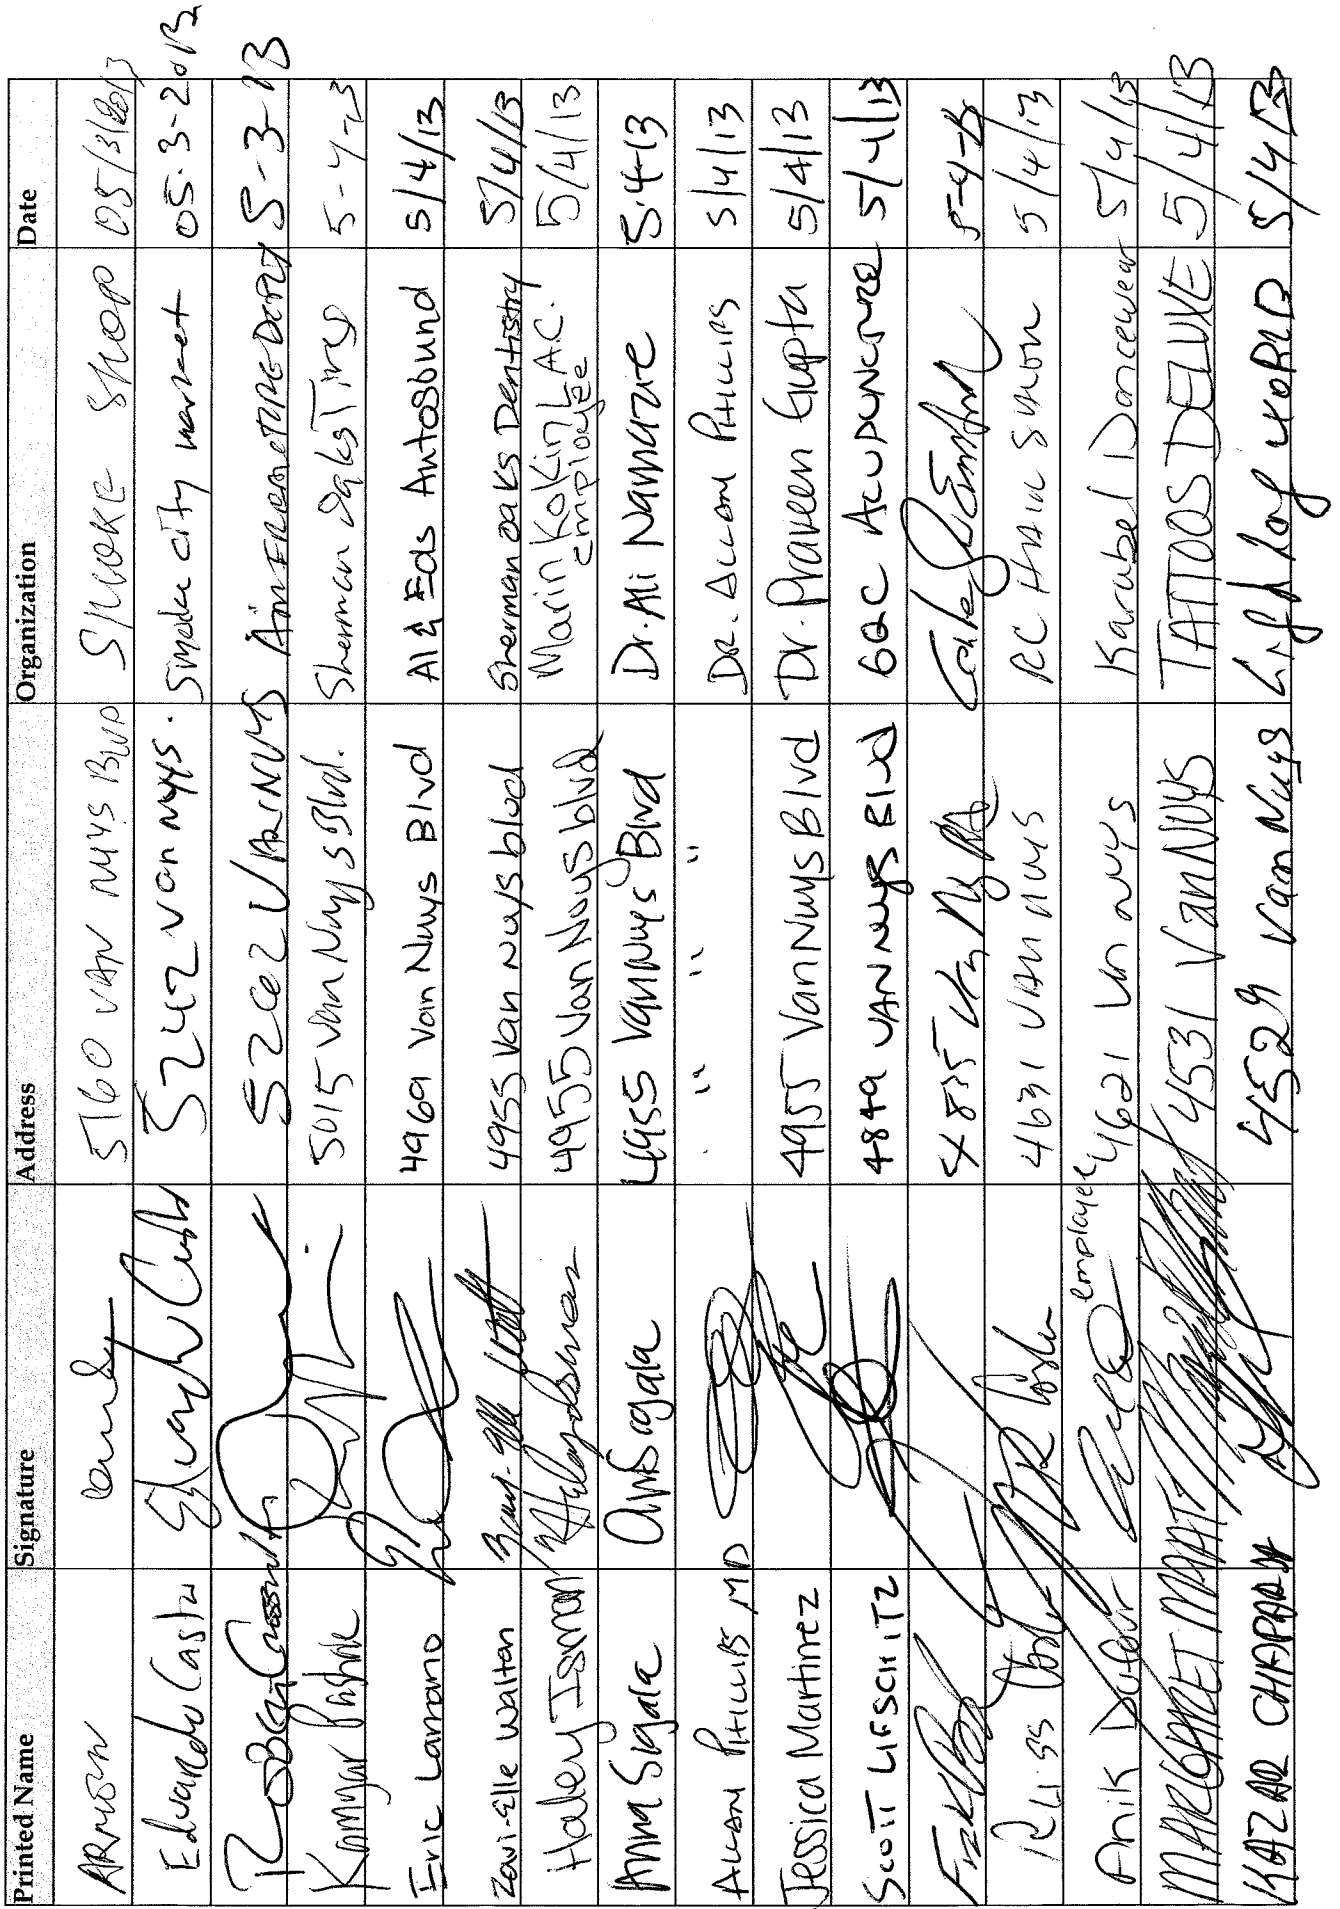 Printed Name Signature Address Organization Date
ARMON 5160 VAN NUYS BLVD SMOKE SHOP 05/3/2013
Eduardo Castro 5242 van nuys. Smoke city market 05-3-2013
5262 VAN NUYS 5-3-13
Kamyar 5015 Van Nuys Blvd. Sherman Oaks Tires 5-4-13
Eric Lamano 4969 Van Nuys Blvd Al & Eds Autosound 5/4/13
Zavi-Elle Walton 4955 Van Nuys blvd Sherman oaks Dentistry 5/4/13
Haley Isman 4955 Van Nuys blvd Marin Kokin L.A.C. employee 5/4/13
Anna Sigala 4955 Van Nuys Blvd Dr. Ali Namazie 5-4-13
ALLAM PHILLIPS MD " " " " DR. ALLAM PHILLIPS 5/4/13
Jessica Martinez 4955 Van Nuys Blvd Dr. Praveen Gupta 5/4/13
SCOTT LIFSCHITZ 4849 VAN NUYS BLVD ACUPUNCTURE 5/4/13
4835 5-4-13
4631 VAN NUYS 5/4/13
Anik Dufour employee 4621 Van nuys Karabel Dancewear 5/4/13
MARGARET 4531 Van NUYS TATTOOS DELUXE 5/4/13
4529 Van Nuys 5/4/13